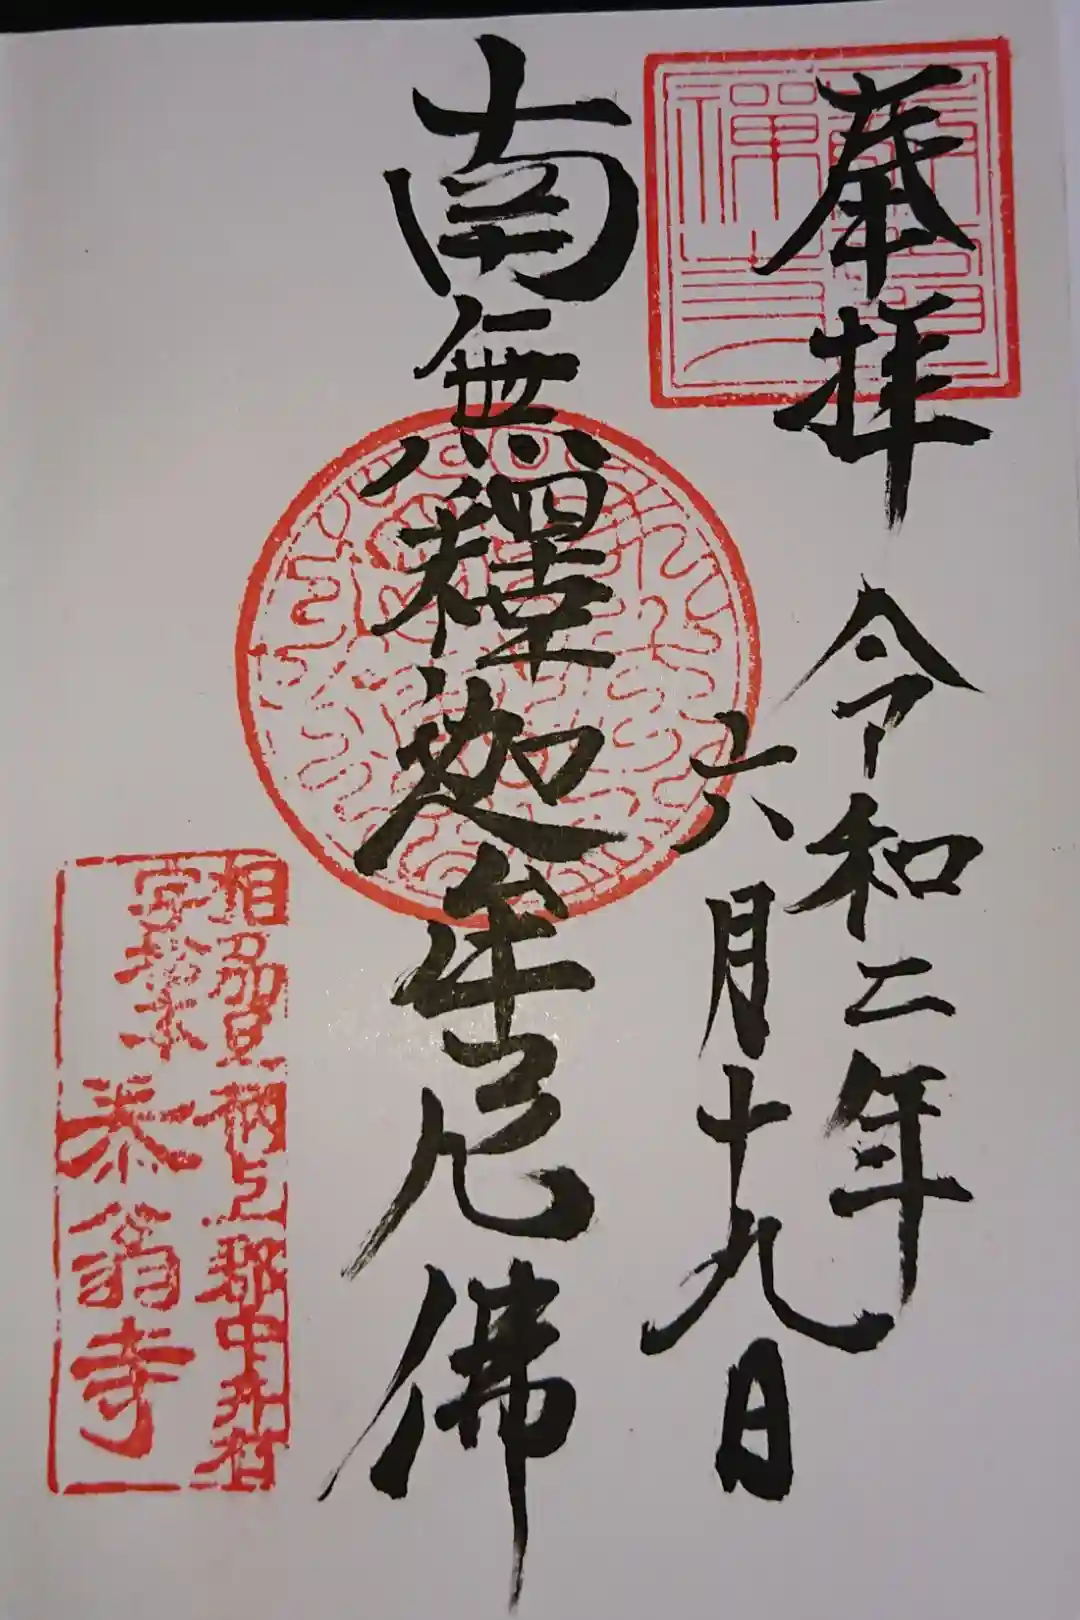 奉拝 令和二年
六月十九日
南無釋迦牟尼佛
相刕足柄上郡中井村
字松本
泰翁寺